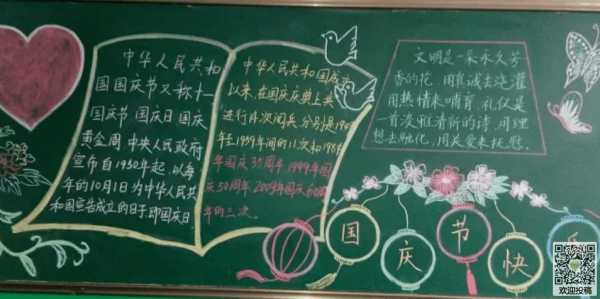 中华人民共和
国国庆节又称十一
国庆节 国庆日 国庆
黄金周 中央人民政府
宣布自1950年起，以每
年的10月1日为中华人民共
和国宣告成立的日子即国庆日
中华人民共和国成立
以来，在国庆庆典上共
进行14次阅兵，分别是194
年至1959年间的11次和1984
年国庆35周年1999年国
庆50周年2009年国庆60周
年的三次。
文明是一朵永久芳
香的花，用真诚去浇灌
用热情来哺育，礼仪是
一首淡雅清新的诗，用理
想去融化，用关爱来抚慰。
国庆节快
欢迎投稿